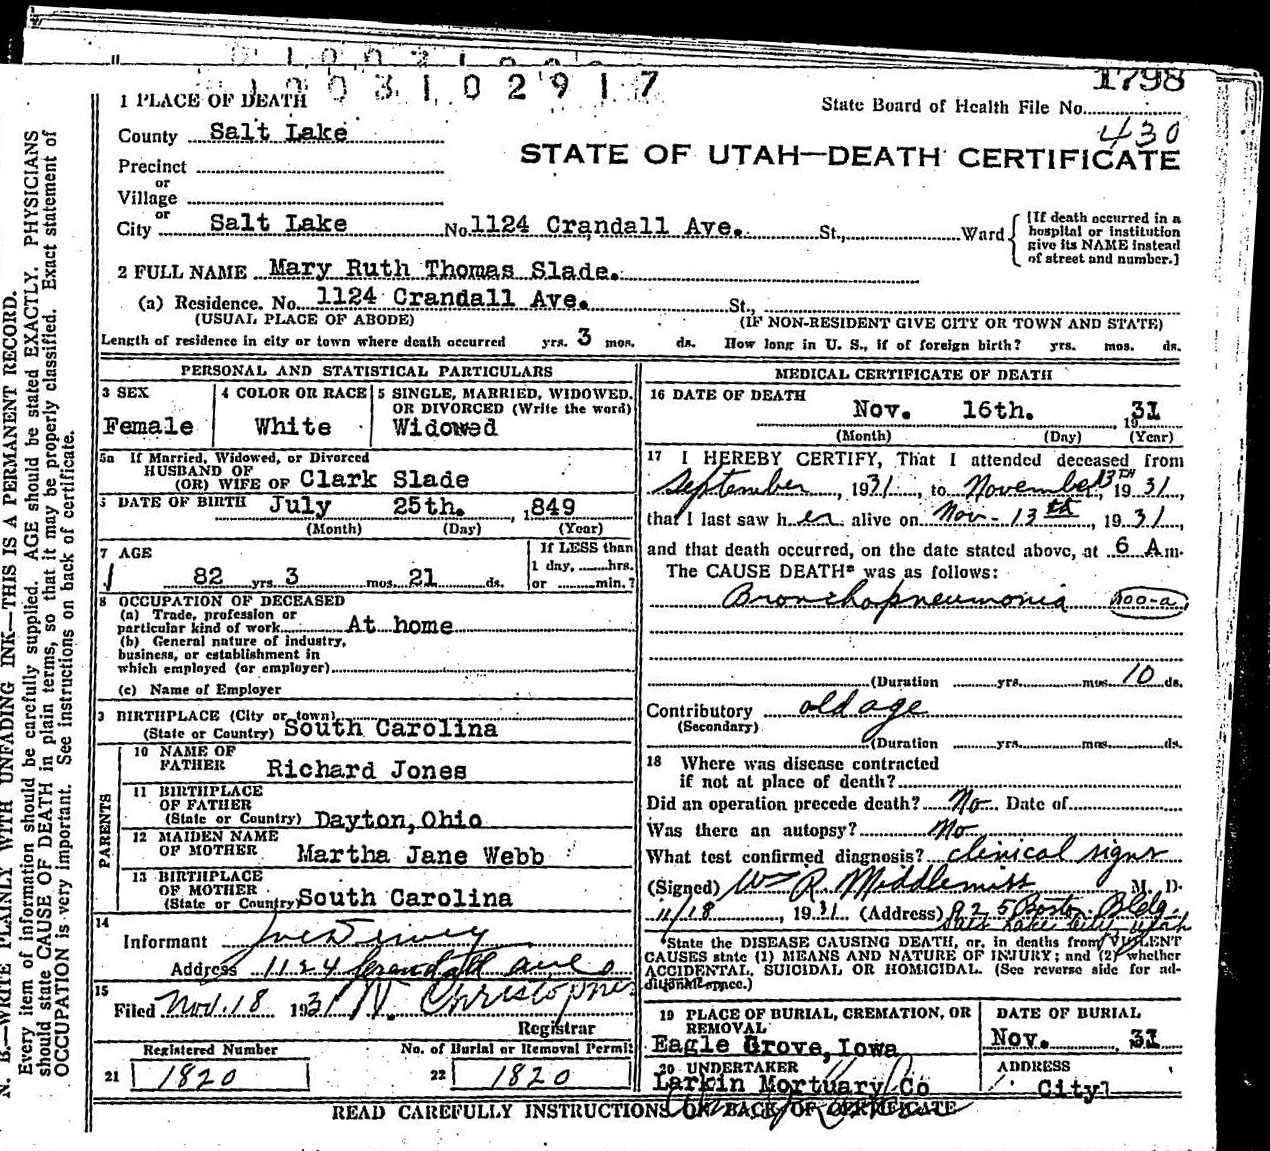 1003102917
1798
1 PLACE OF DEATH
State Board of Health File No.
430
County Salt Lake
STATE OF UTAH—DEATH CERTIFICATE
Precinct
or
Village
or
City Salt Lake No. 1124 Crandall Ave. St., Ward
[If death occurred in a
hospital or institution
give its NAME instead
of street and number.]
2 FULL NAME Mary Ruth Thomas Slade.
(a) Residence. No. 1124 Crandall Ave. St.,
(USUAL PLACE OF ABODE) (IF NON-RESIDENT GIVE CITY OR TOWN AND STATE)
Length of residence in city or town where death occurred yrs. 3 mos. ds. How long in U. S., if of foreign birth? yrs. mos. ds.
PERSONAL AND STATISTICAL PARTICULARS
3 SEX
Female
4 COLOR OR RACE
White
5 SINGLE, MARRIED, WIDOWED,
OR DIVORCED (Write the word)
Widowed
5a If Married, Widowed, or Divorced
HUSBAND OF
(OR) WIFE OF Clark Slade
DATE OF BIRTH July 25th. , 1849
(Month) (Day) (Year)
7 AGE
82 yrs. 3 mos. 21 ds.
If LESS than
1 day, hrs.
or min.?
8 OCCUPATION OF DECEASED
(a) Trade, profession or
particular kind of work At home
(b) General nature of industry,
business, or establishment in
which employed (or employer)
(c) Name of Employer
9 BIRTHPLACE (City or town)
(State or Country) South Carolina
PARENTS
10 NAME OF
FATHER Richard Jones
11 BIRTHPLACE
OF FATHER
(State or Country) Dayton, Ohio
12 MAIDEN NAME
OF MOTHER Martha Jane Webb
13 BIRTHPLACE
OF MOTHER
(State or Country) South Carolina
14
Informant
Address 1124 Crandall ave
15
Filed Nov. 18 1931 N. Christopher
Registrar
Registered Number
21 1820
No. of Burial or Removal Permit
22 1820
MEDICAL CERTIFICATE OF DEATH
16 DATE OF DEATH
Nov. 16th. 1931
(Month) (Day) (Year)
17 I HEREBY CERTIFY, That I attended deceased from
September, 1931, to November 13TH, 1931,
that I last saw her alive on Nov - 13th, 1931,
and that death occurred, on the date stated above, at 6 A m.
The CAUSE DEATH* was as follows:
Bronchopneumonia 100-a
(Duration yrs. mos. 10 ds.
Contributory old age
(Secondary)
(Duration yrs. mos. ds.
18 Where was disease contracted
if not at place of death?
Did an operation precede death? No. Date of
Was there an autopsy? No
What test confirmed diagnosis? clinical signs
(Signed) Wm R. Middlemiss M. D.
11/18, 1931 (Address) 925 Boston Bldg.
Salt Lake City, Utah
*State the DISEASE CAUSING DEATH, or, in deaths from VIOLENT
CAUSES state (1) MEANS AND NATURE OF INJURY; and (2) whether
ACCIDENTAL, SUICIDAL OR HOMICIDAL. (See reverse side for ad-
ditional space.)
19 PLACE OF BURIAL, CREMATION, OR
REMOVAL
Eagle Grove, Iowa
DATE OF BURIAL
Nov. 31
20 UNDERTAKER
Larkin Mortuary Co
ADDRESS
City
READ CAREFULLY INSTRUCTIONS ON BACK OF CERTIFICATE
N. B.—WRITE PLAINLY WITH UNFADING INK—THIS IS A PERMANENT RECORD.
Every item of information should be carefully supplied. AGE should be stated EXACTLY. PHYSICIANS
should state CAUSE OF DEATH in plain terms, so that it may be properly classified. Exact statement of
OCCUPATION is very important. See instructions on back of certificate.